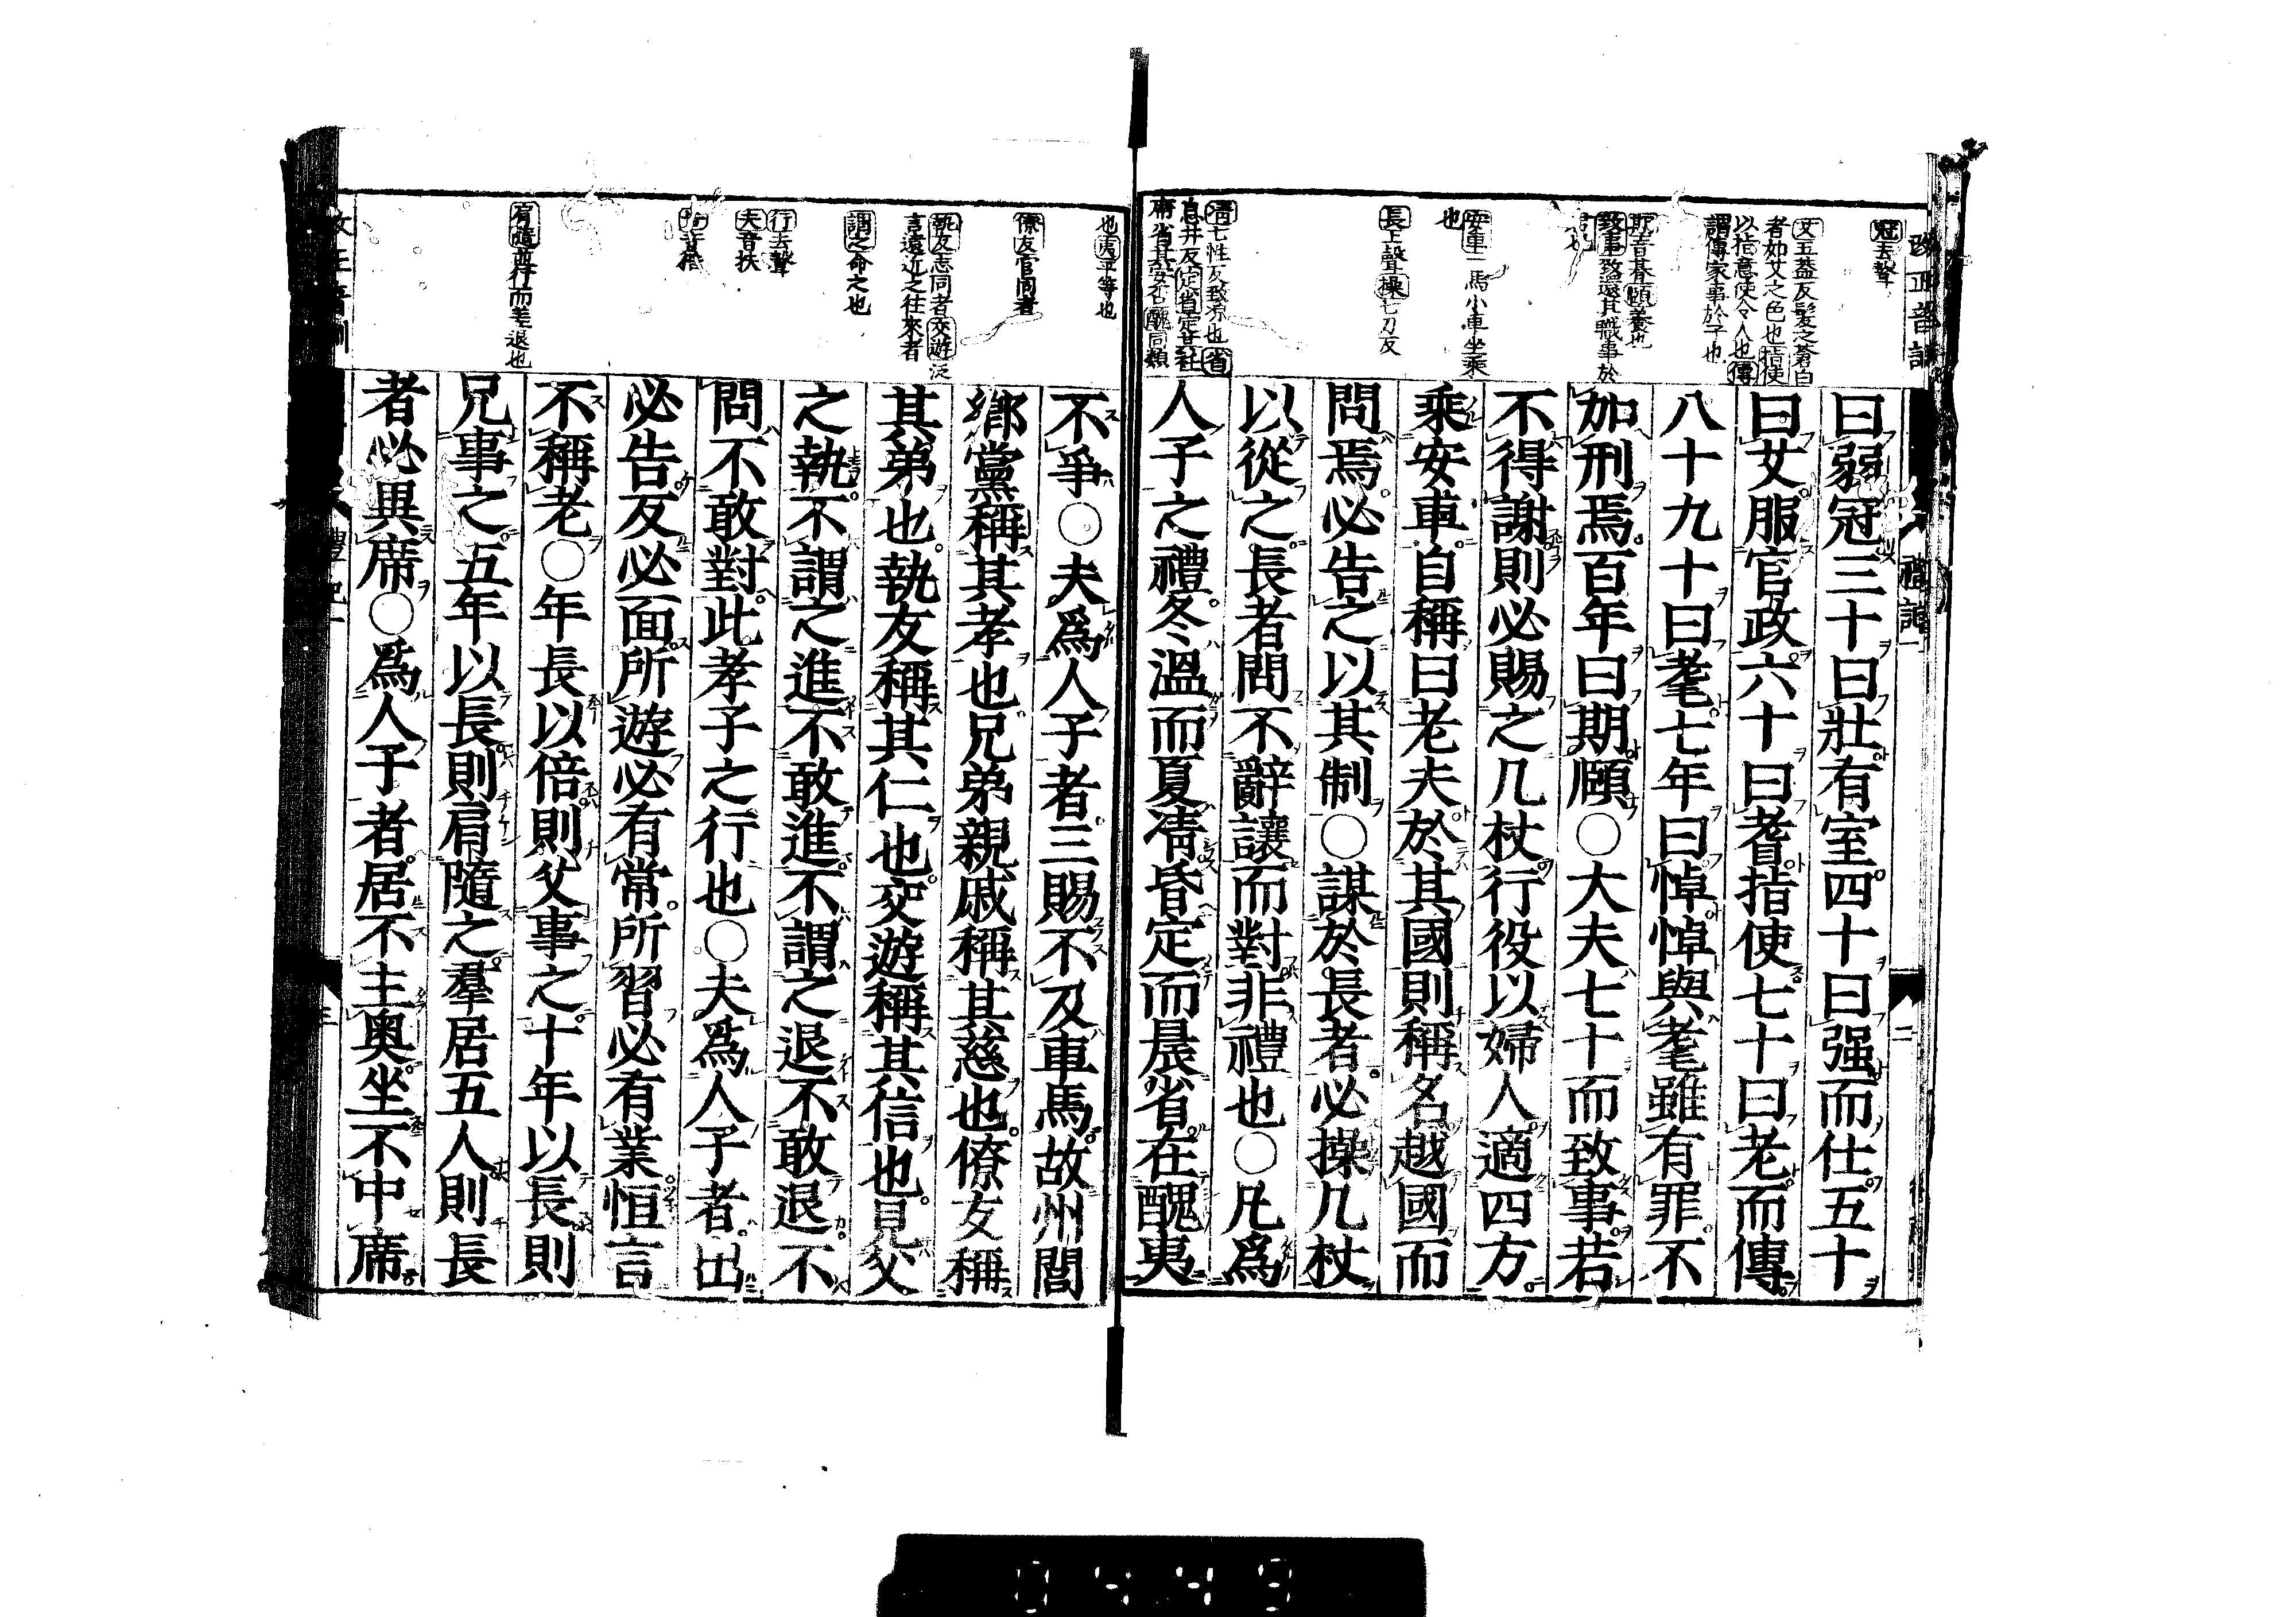 冠去聲
艾五蓋反髮之蒼白
者如艾之色也指使
以指意使令人也傳
謂傳家事於子也
期音朞頤養也
致事致還其職事於
君也
安車一馬小車坐乘
也
長上聲操七刀反
凊七性反致凉也省
息井反定省定其衽
席省其安否醜同類
曰弱冠三十曰壯有室四十曰强而仕五十
曰艾服官政六十曰耆指使七十曰老而傳
八十九十曰耄七年曰悼悼與耄雖有罪不
加刑焉百年曰期頤○大夫七十而致事若
不得謝則必賜之几杖行役以婦人適四方
乘安車自稱曰老夫於其國則稱名越國而
問焉必告之以其制○謀於長者必操几杖
以從之長者問不辭讓而對非禮也○凡爲
人子之禮冬溫而夏凊昏定而晨省在醜夷
也夷平等也
僚友官同者
執友志同者交遊泛
言遠近之往來者
謂之命之也
行去聲
夫音扶
肩隨並行而差退也
不爭○夫爲人子者三賜不及車馬故州閭
鄕黨稱其孝也兄弟親戚稱其慈也僚友稱
其弟也執友稱其仁也交遊稱其信也見父
之執不謂之進不敢進不謂之退不敢退不
問不敢對此孝子之行也○夫爲人子者出
必告反必面所遊必有常所習必有業恒言
不稱老○年長以倍則父事之十年以長則
兄事之五年以長則肩隨之羣居五人則長
者必異席○爲人子者居不主奧坐不中席